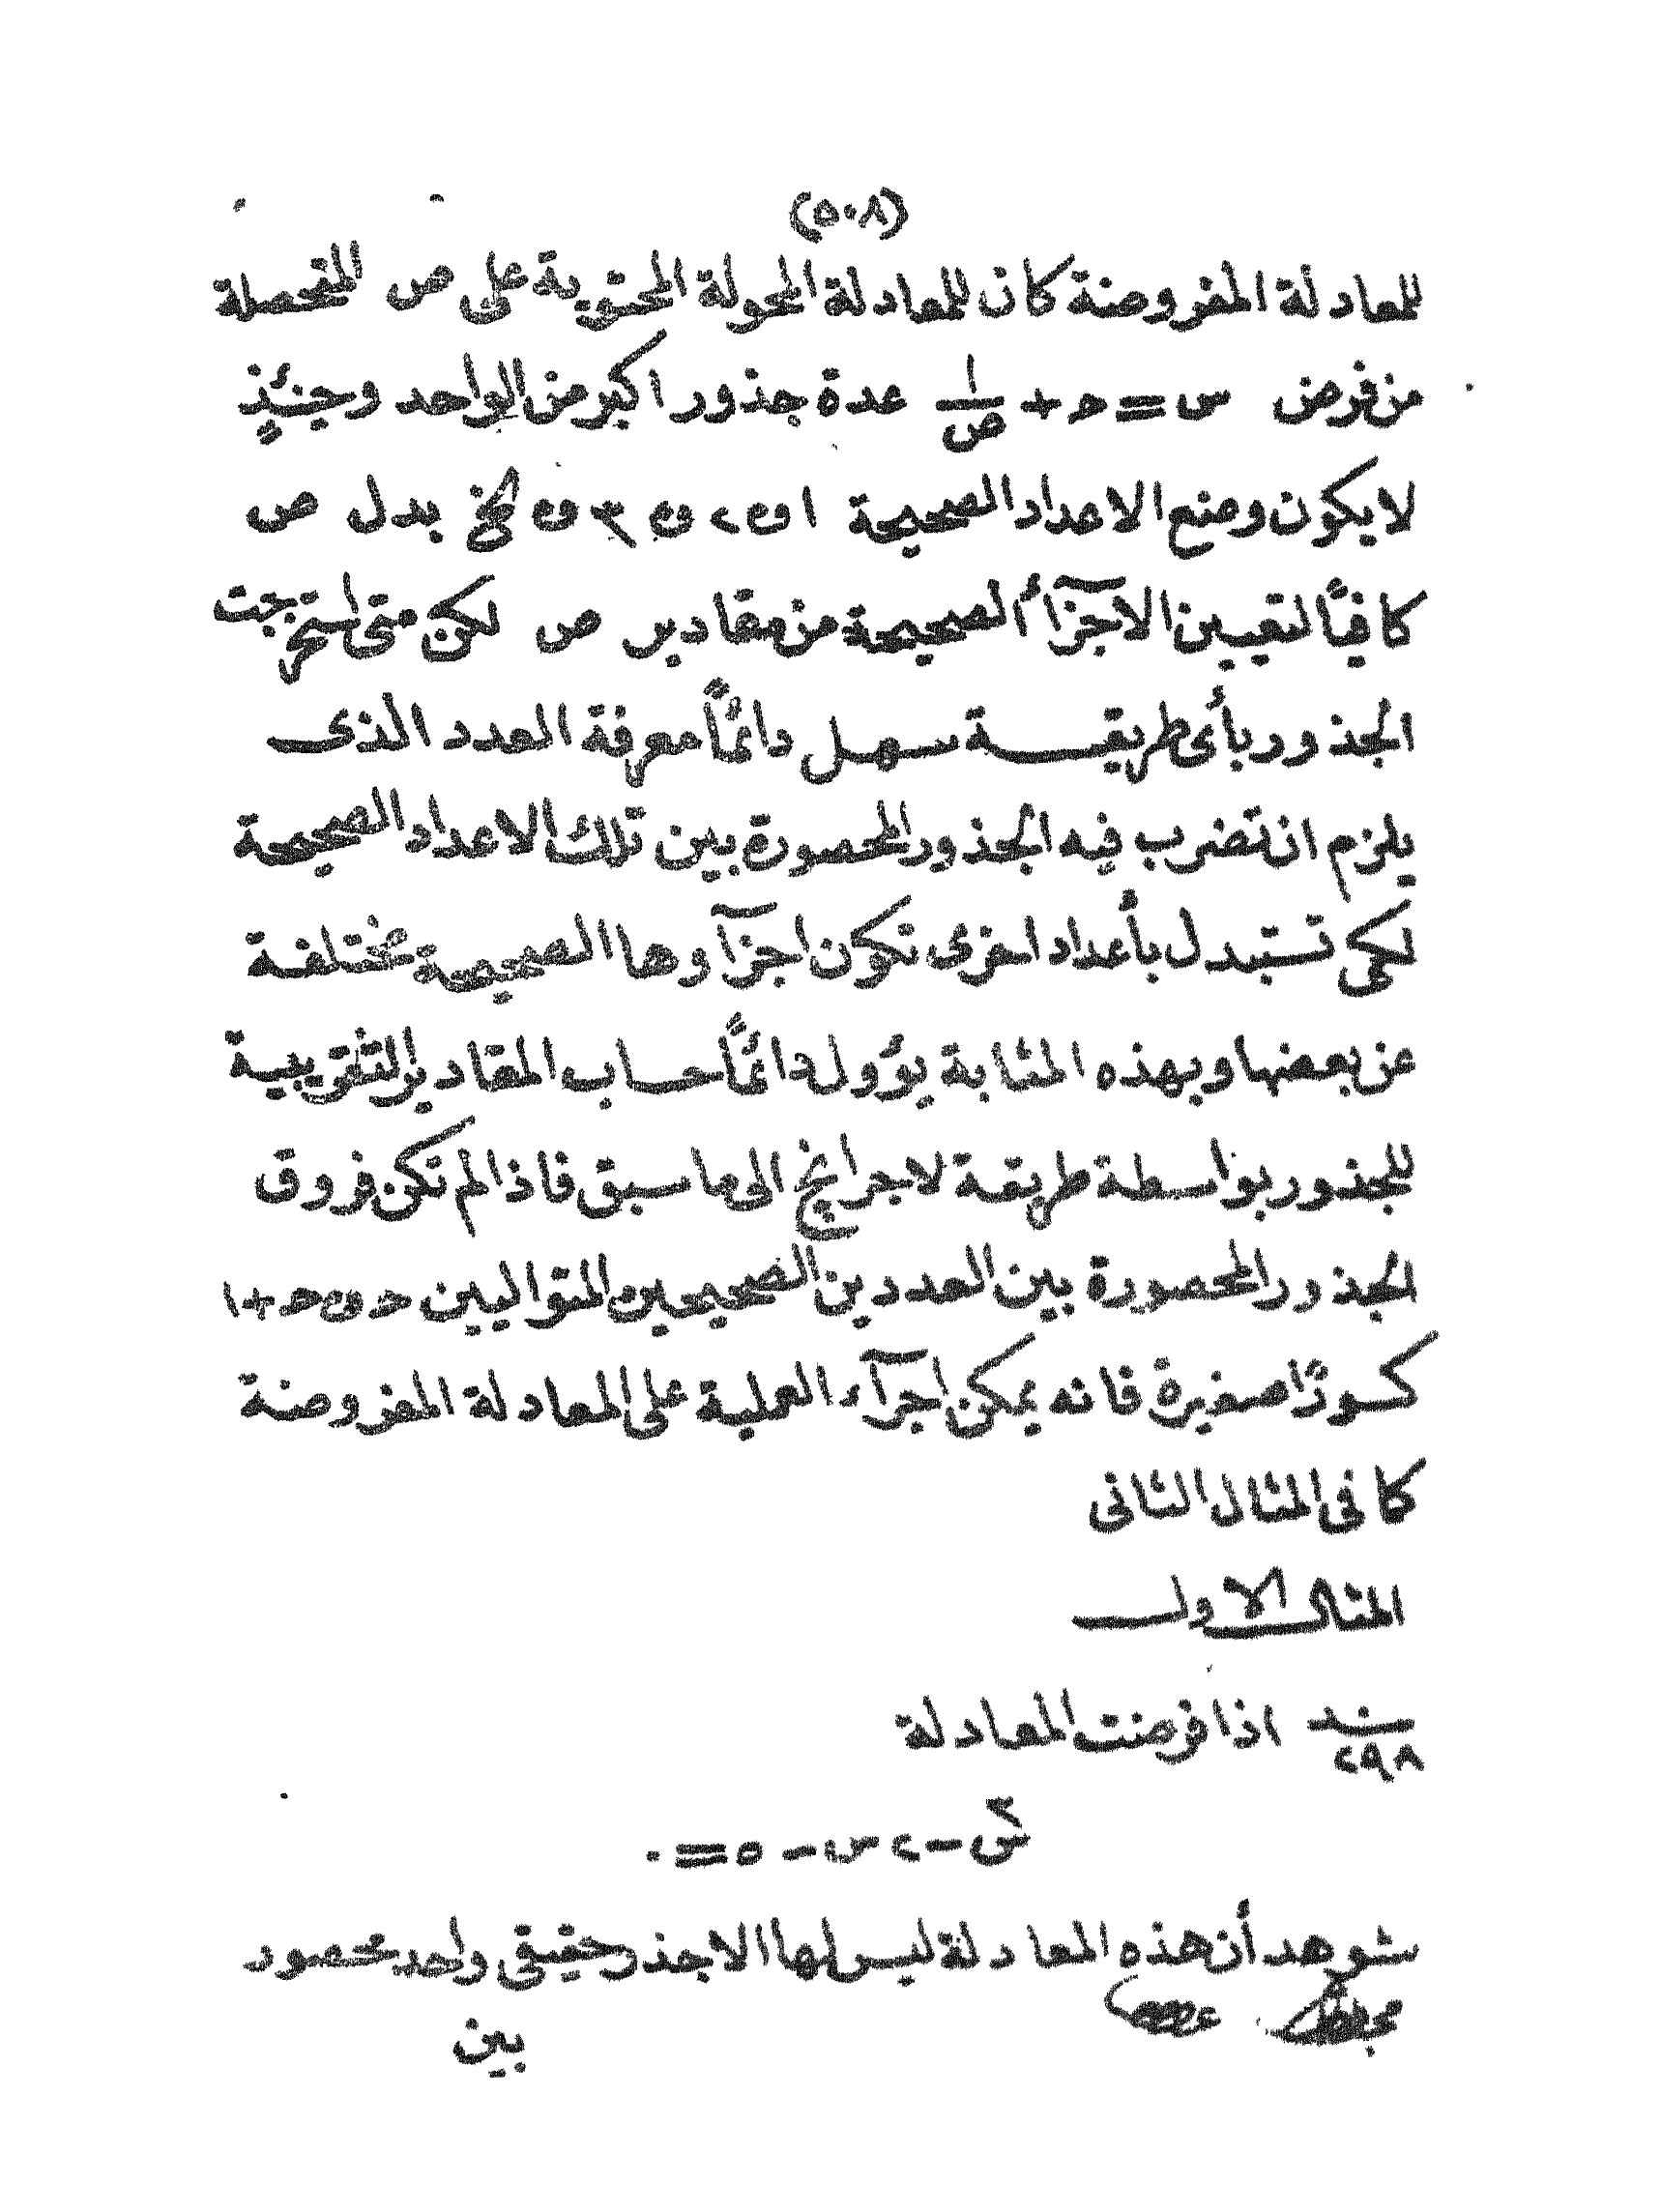 (٥٠٨)
للمعادلة المفروضة كان للمعادلة المحولة المحتوية على ص المتحصلة
من فرض س = ح + ١/ص عدة جذور اكبر من الواحد وحينئذ
لا يكون وضع الاعداد الصحيحة ١ و ٢ و ٣ و الخ بدل ص
كافيًا لتعيين الاجزآء الصحيحة من مقادير ص لكن متى استخرجت
الجذور بأى طريقة سهل دائمًا معرفة العدد الذى
يلزم ان تضرب فيه الجذور المحصورة بين تلك الاعداد الصحيحة
لكى تستبدل بأعداد اخرى تكون اجزآوها الصحيحة مختلفة
عن بعضها وبهذه المثابة يؤول دائمًا حساب المقادير التقريبية
للجذور بواسطة طريقة لاجرانج الى ما سبق فاذا لم تكن فروق
الجذور المحصورة بين العددين الصحيحين المتواليين ح و ح + ١
كسورًا صغيرة فانه يمكن اجرآء العملية على المعادلة المفروضة
كما فى المثال الثانى
المثال الاول
بند ٢٩٨ اذا فرضت المعادلة
س٣ - ٢ س - ٥ = ٠
شوهد أن هذه المعادلة ليس لها الا جذر حقيقى واحد محصور
بين